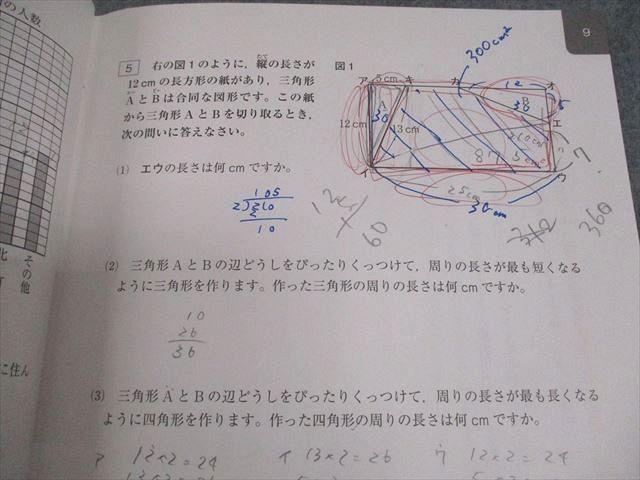 の人数
9
5 右の図1のように，縦の長さが
12cmの長方形の紙があり，三角形
AとBは合同な図形です。この紙
から三角形AとBを切り取るとき，
次の問いに答えなさい。
図1
300cm²
ア 5cm キ カ 12 オ
A 30
B 30
5
エ
12cm
13cm
イ
ウ
25cm
30cm
?
360
(1) エウの長さは何cmですか。
105
2)210
2
10
60
(2) 三角形AとBの辺どうしをぴったりくっつけて，周りの長さが最も短くなる
ように三角形を作ります。作った三角形の周りの長さは何cmですか。
10
26
36
(3) 三角形AとBの辺どうしをぴったりくっつけて，周りの長さが最も長くなる
ように四角形を作ります。作った四角形の周りの長さは何cmですか。
ア 12×2=24 イ 13×2=26 ウ 12×2=24
北
その他
に住ん